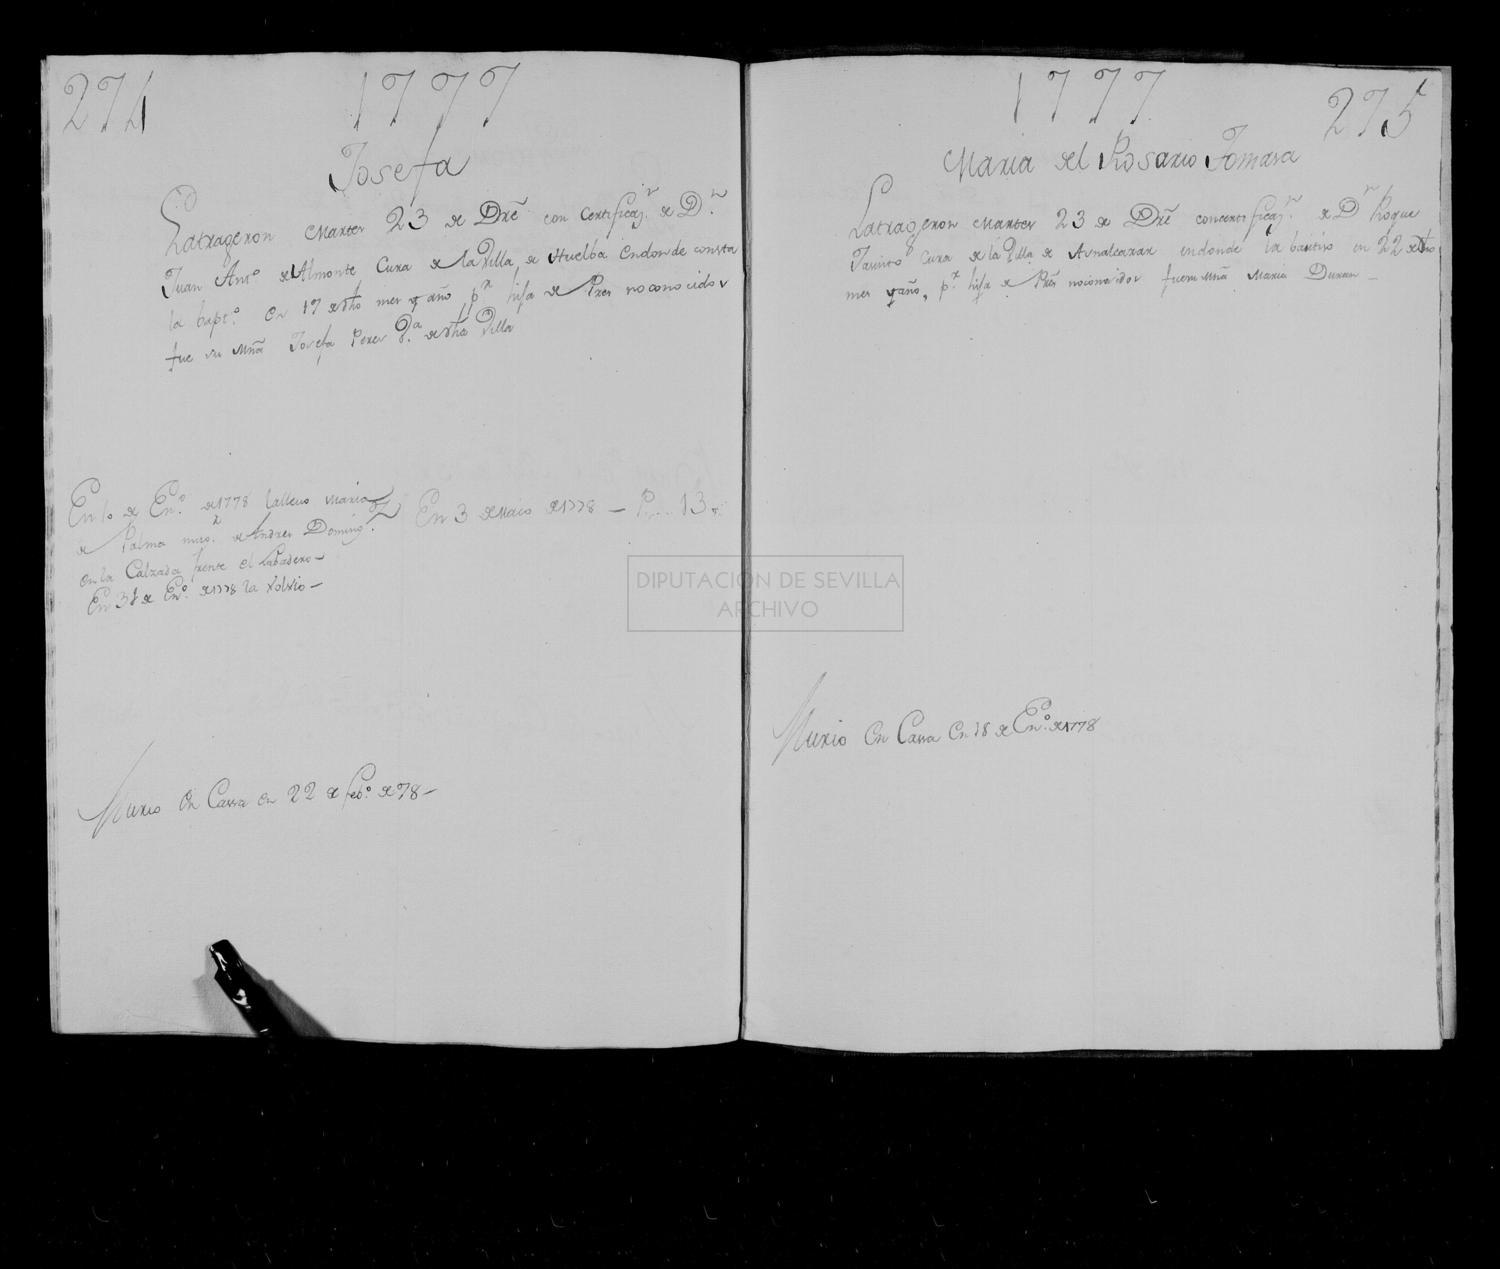 274
1777
Josefa
Latrageron Martes 23 de Dre con Certificaj.n de D.n
Juan Ant.o de Almonte Cura de la Villa de Huelba Endonde consta
la bapt.o en 17 de dho mes y año, p.r hija de P.res no conocidos
fue su Mña Josefa Perez V.a de dha Villa
En 10 de En.o de 1778 la llevo Maria
de Palma mug.r de Andres Doming.z
en la Calzada frente el Labadero —
En 31 de En.o de 1778 la Volvio —
En 3 de Maio de 1778 — P... 13 r.
Murio En Cassa en 22 de feb.o de 78 —
1777
275
Maria del Rosario Tomasa
Latrageron Martes 23 de Dre con certificaj.n de D.n Roque
Jasinto Cura de la Villa de Asnalcazar endonde la bautiso en 22 de dho
mes y año, p.r hija de P.res no conosidos fue su Mña Maria Duran —
Murio En Cassa En 18 de En.o de 1778
DIPUTACIÓN DE SEVILLA
ARCHIVO